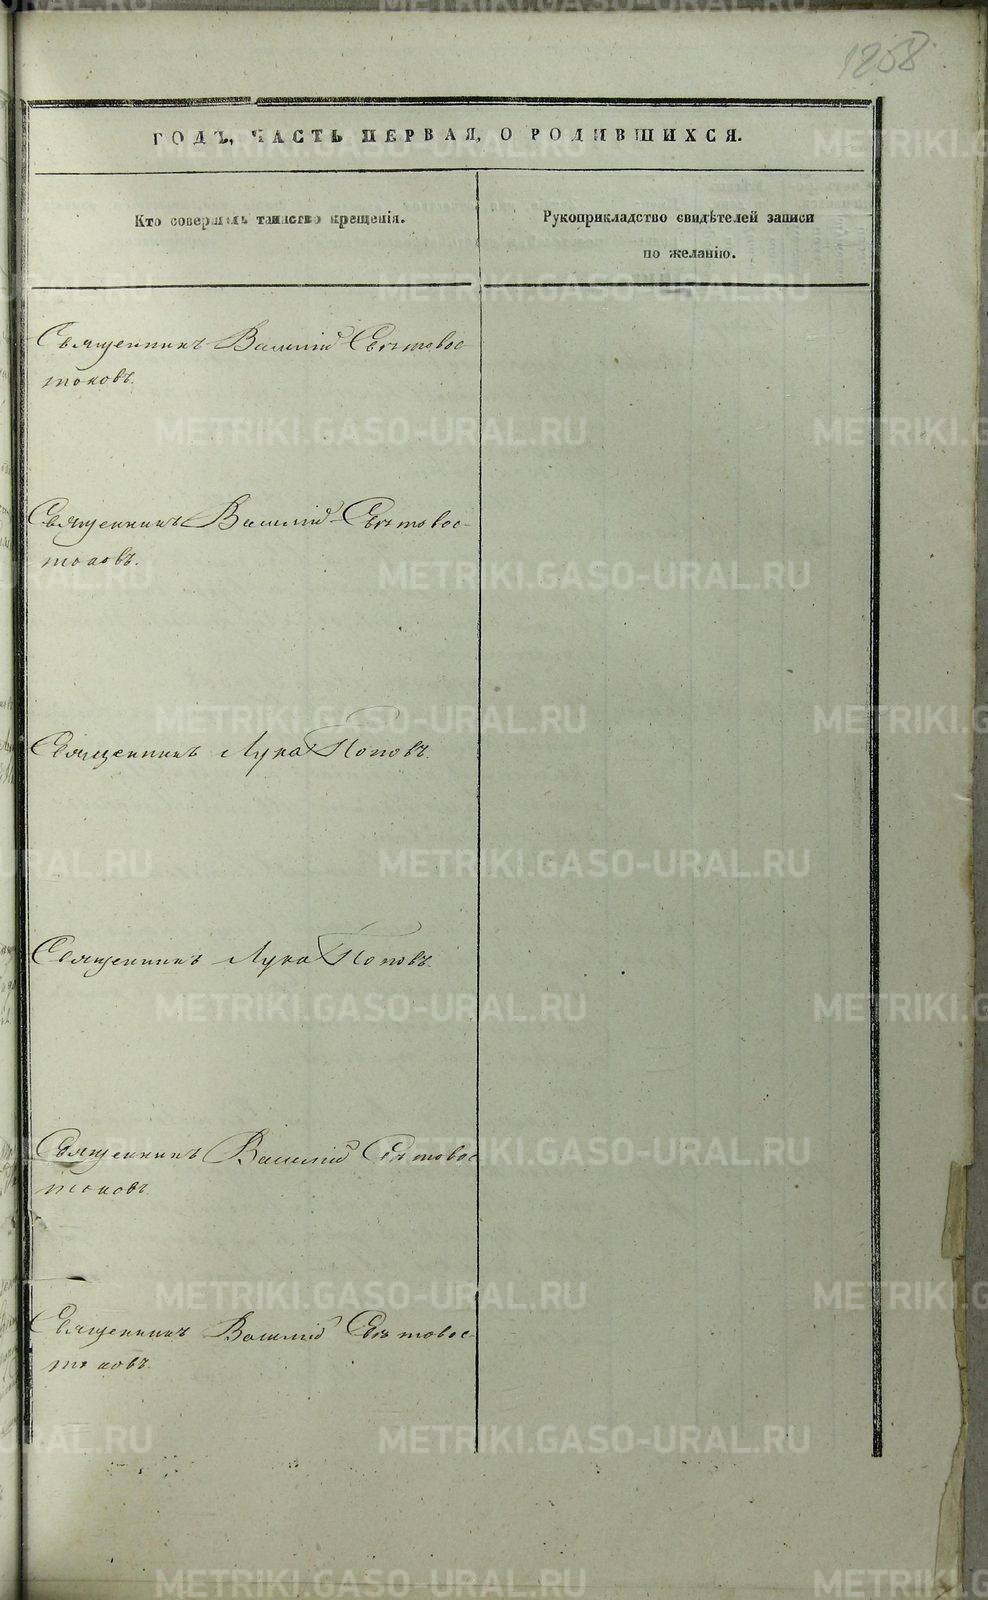 1258
ГОДЪ, ЧАСТЬ ПЕРВАЯ, О РОДИВШИХСЯ.
Кто совершалъ таинство крещенія.
Рукоприкладство свидѣтелей записи
по желанію.
Священникъ Василій Свѣтовос-
токовъ.
Священникъ Василій Свѣтовос-
токовъ.
Священникъ Лука Поповъ.
Священникъ Лука Поповъ.
Священникъ Василій Свѣтовос-
токовъ.
Священникъ Василій Свѣтовос-
токовъ.
METRIKI.GASO-URAL.RU